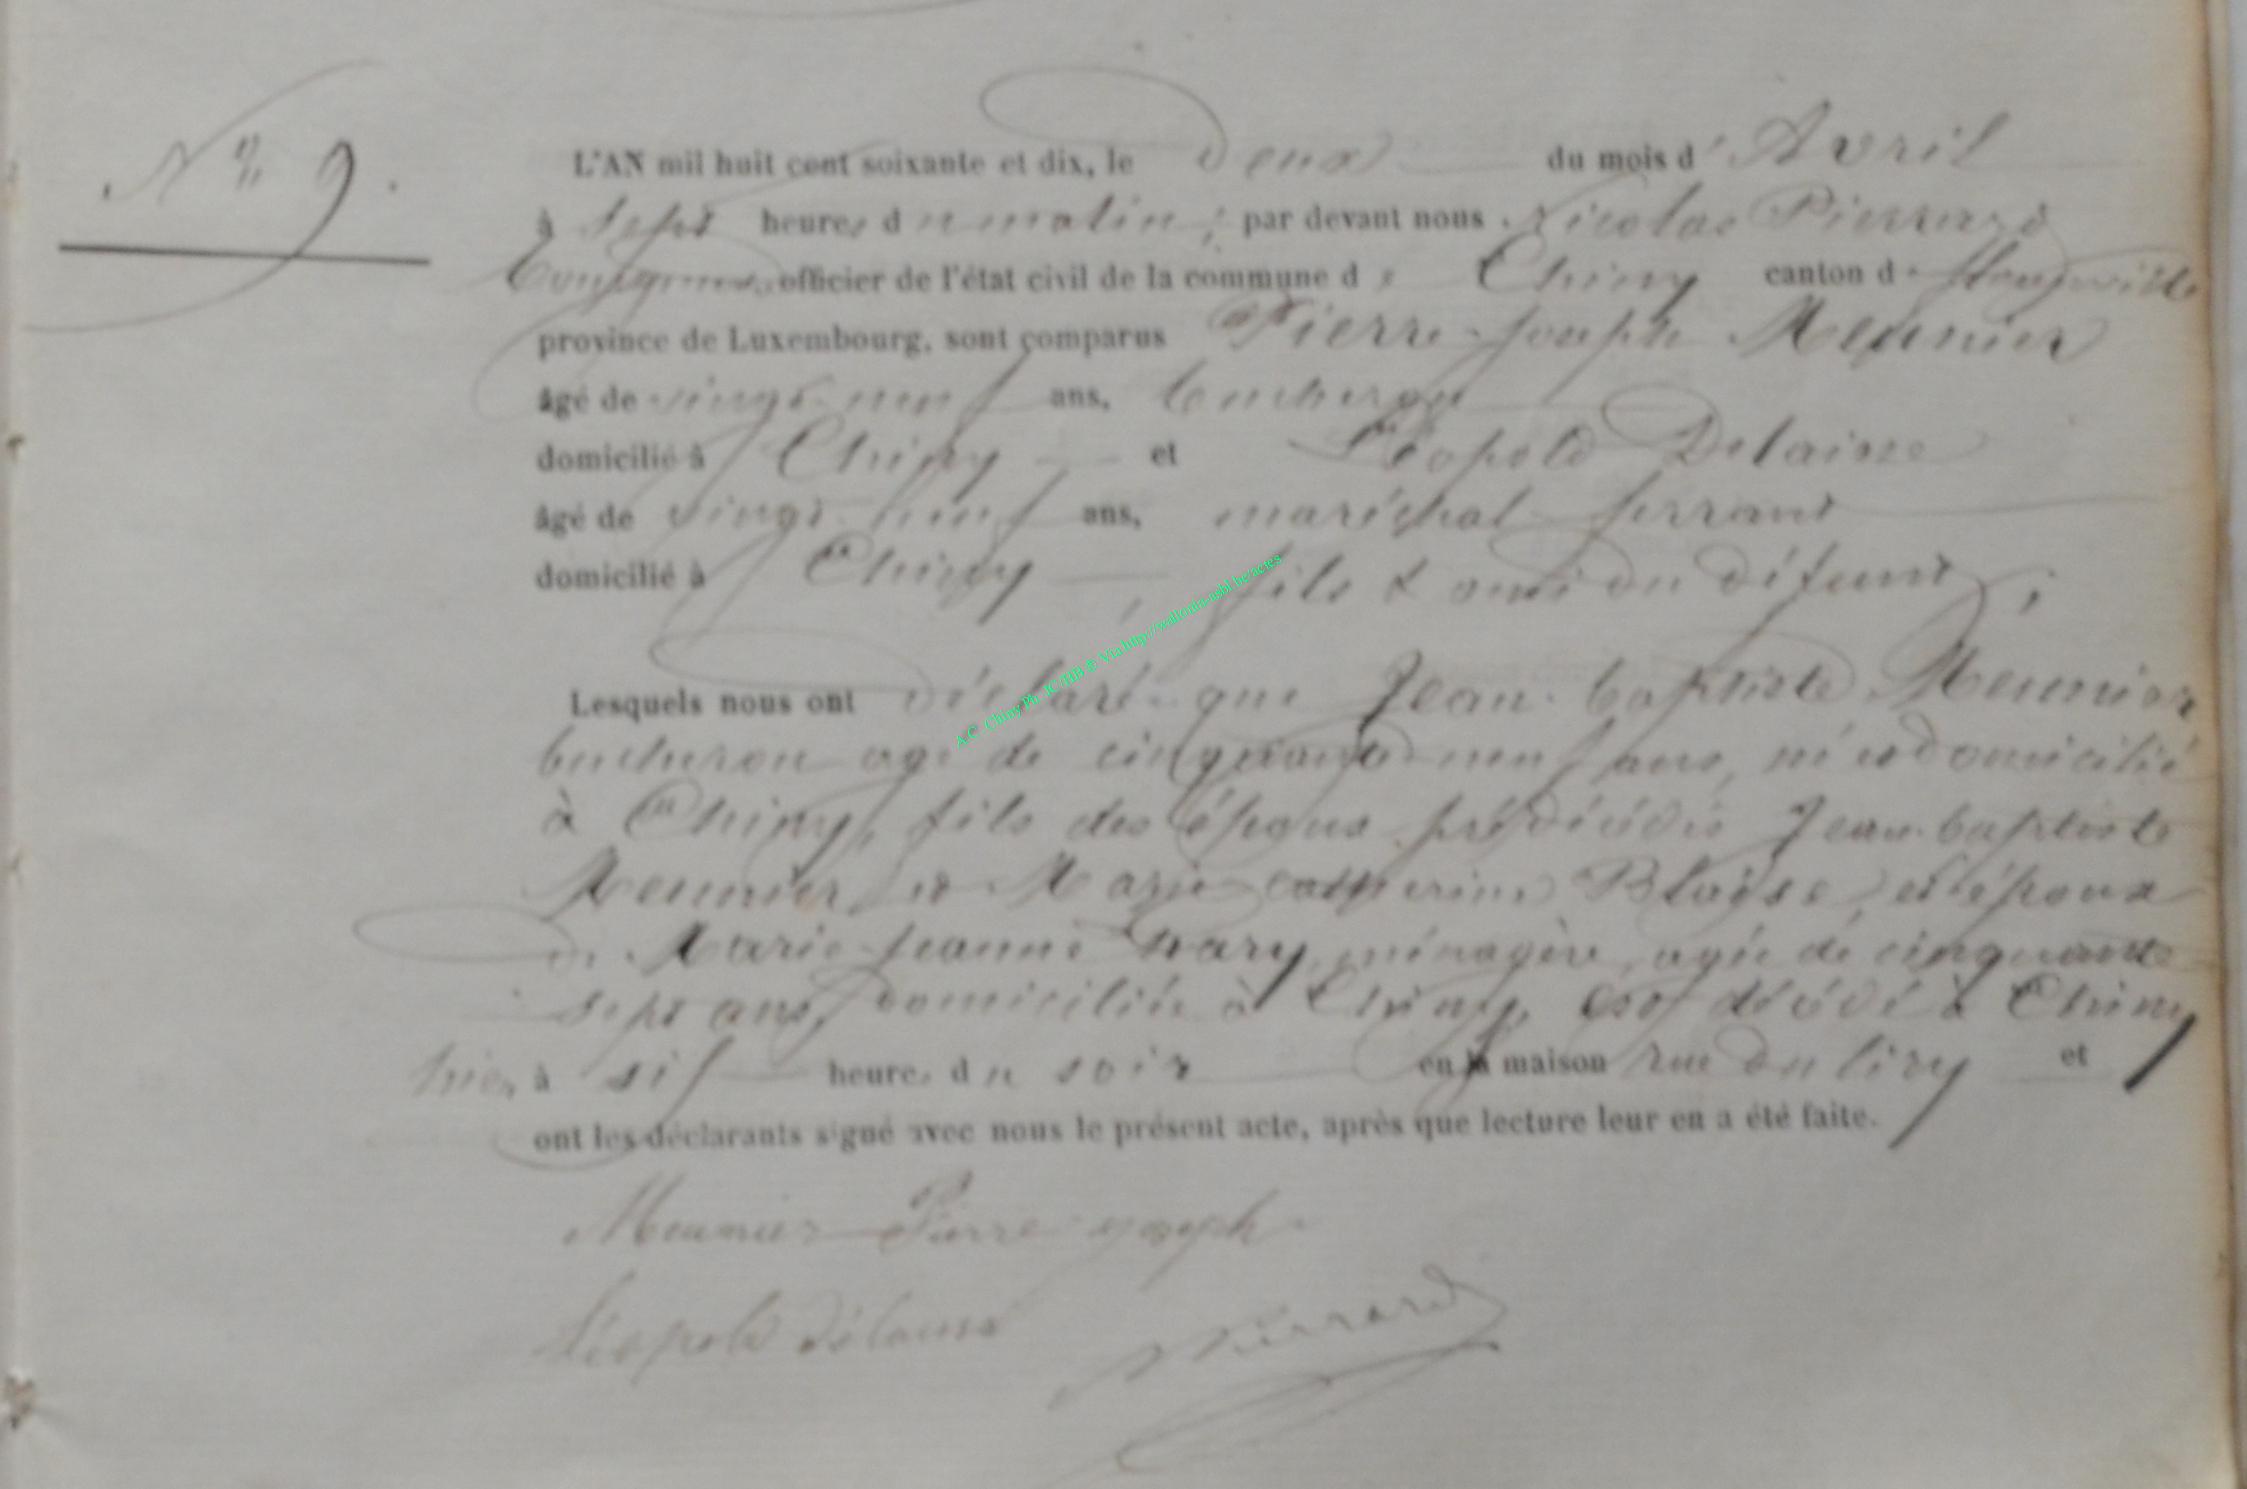 N° 9.
L'AN mil huit cent soixante et dix, le deux du mois d'Avril
à sept heures du matin, par devant nous Nicolas Pierrard
Bourgmestre officier de l'état civil de la commune de Chiny canton de
province de Luxembourg, sont comparus Pierre-Joseph Meunier
âgé de vingt-neuf ans, bucheron
domicilié à Chiny et Léopold Delaisse
âgé de vingt-neuf ans, maréchal ferrant
domicilié à Chiny, fils & ami du défunt;
Lesquels nous ont déclaré que Jean-baptiste Meunier
bucheron agé de cinquante neuf ans, né et domicilié
à Chiny, fils des époux prédécédés Jean-baptiste
Meunier et Marie catherine Blaise, et époux
de Marie-Jeanne ménagère, agée de cinquante
sept ans, domiciliée à Chiny, est décédé à Chiny
hier à six heures du soir en la maison rue du et
ont les déclarants signé avec nous le présent acte, après que lecture leur en a été faite.
Meunier Pierre joseph
Léopold Délaisse
NPierrard
A.C. Chiny Ph. JC/HB ® Via http://wallonia-asbl.be/actes